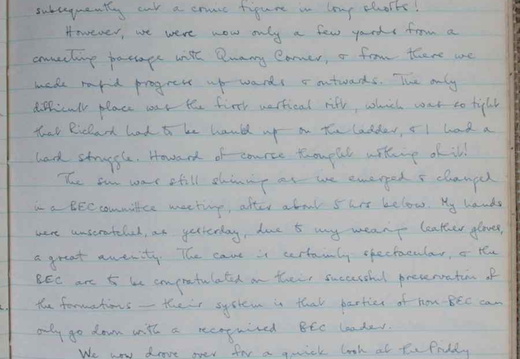 subsequently cut a comic figure in long shorts!
However, we were now only a few yards from a
connecting passage with Quarry Corner, & from there we
made rapid progress upwards & outwards. The only
difficult place was the first vertical rift, which was so tight
that Richard had to be hauled up on the ladder, & I had a
hard struggle. Howard of course thought nothing of it!
The sun was still shining as we emerged & changed
in a BEC committee meeting, after about 5 hrs below. My hands
were unscratched, as yesterday, due to my wearing leather gloves,
a great amenity. The cave is certainly spectacular, & the
BEC are to be congratulated on their successful preservation of
the formations — their system is that parties of non-BEC can
only go down with a recognised BEC leader.
We now drove over for a quick look at the Priddy